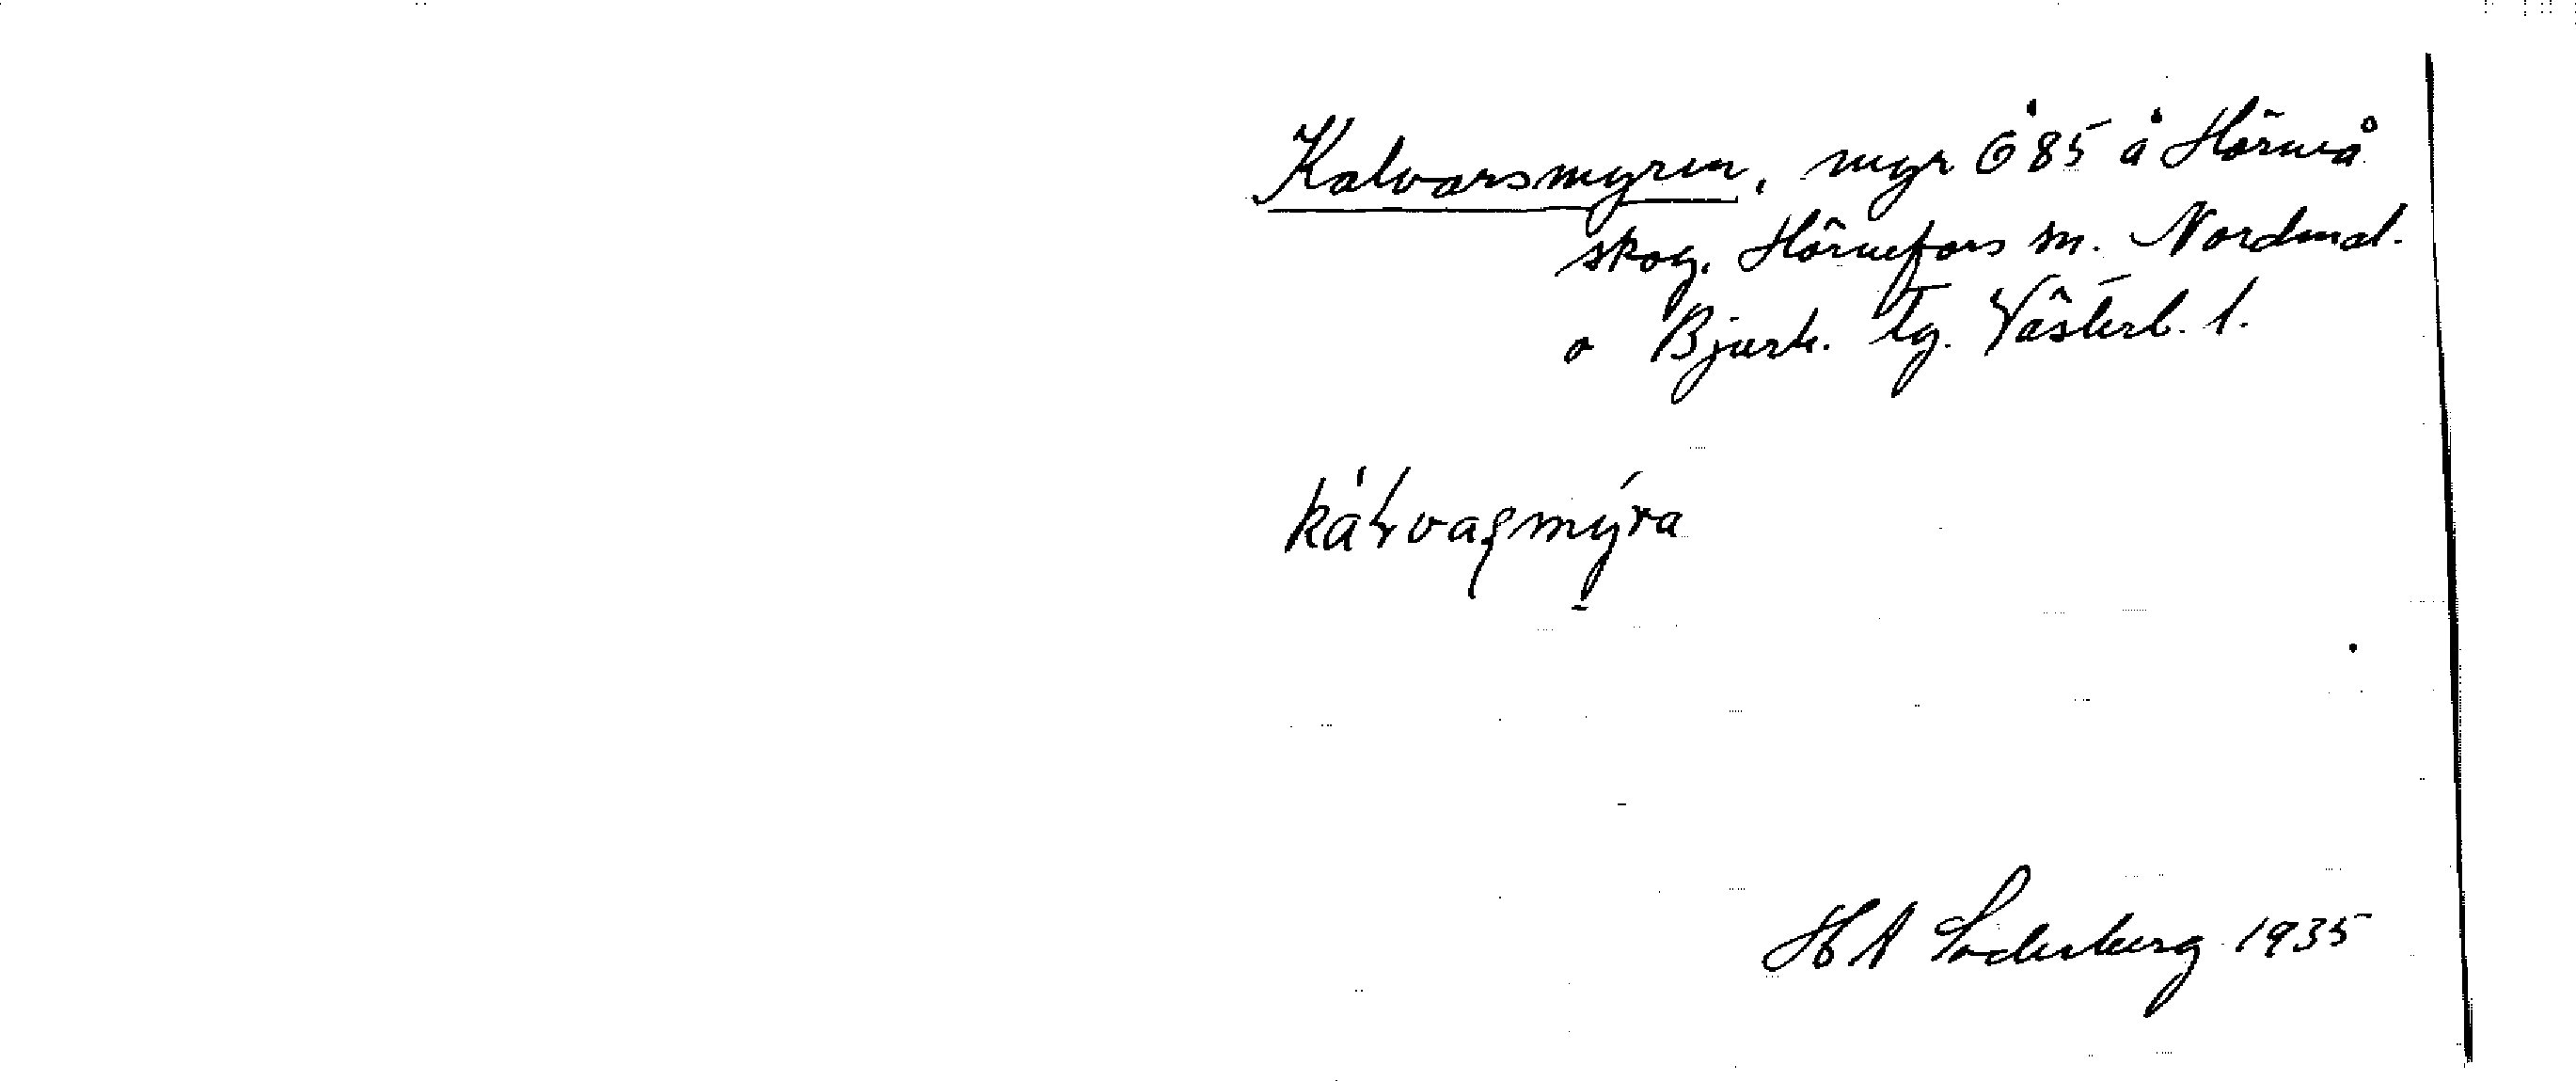 Kalvarsmyren, myr Ö 85 å Hörneå
skog. Hörnefors sn. Nordmal.
o Bjurh. tg. Västerb. l.
HA Söderberg 1935